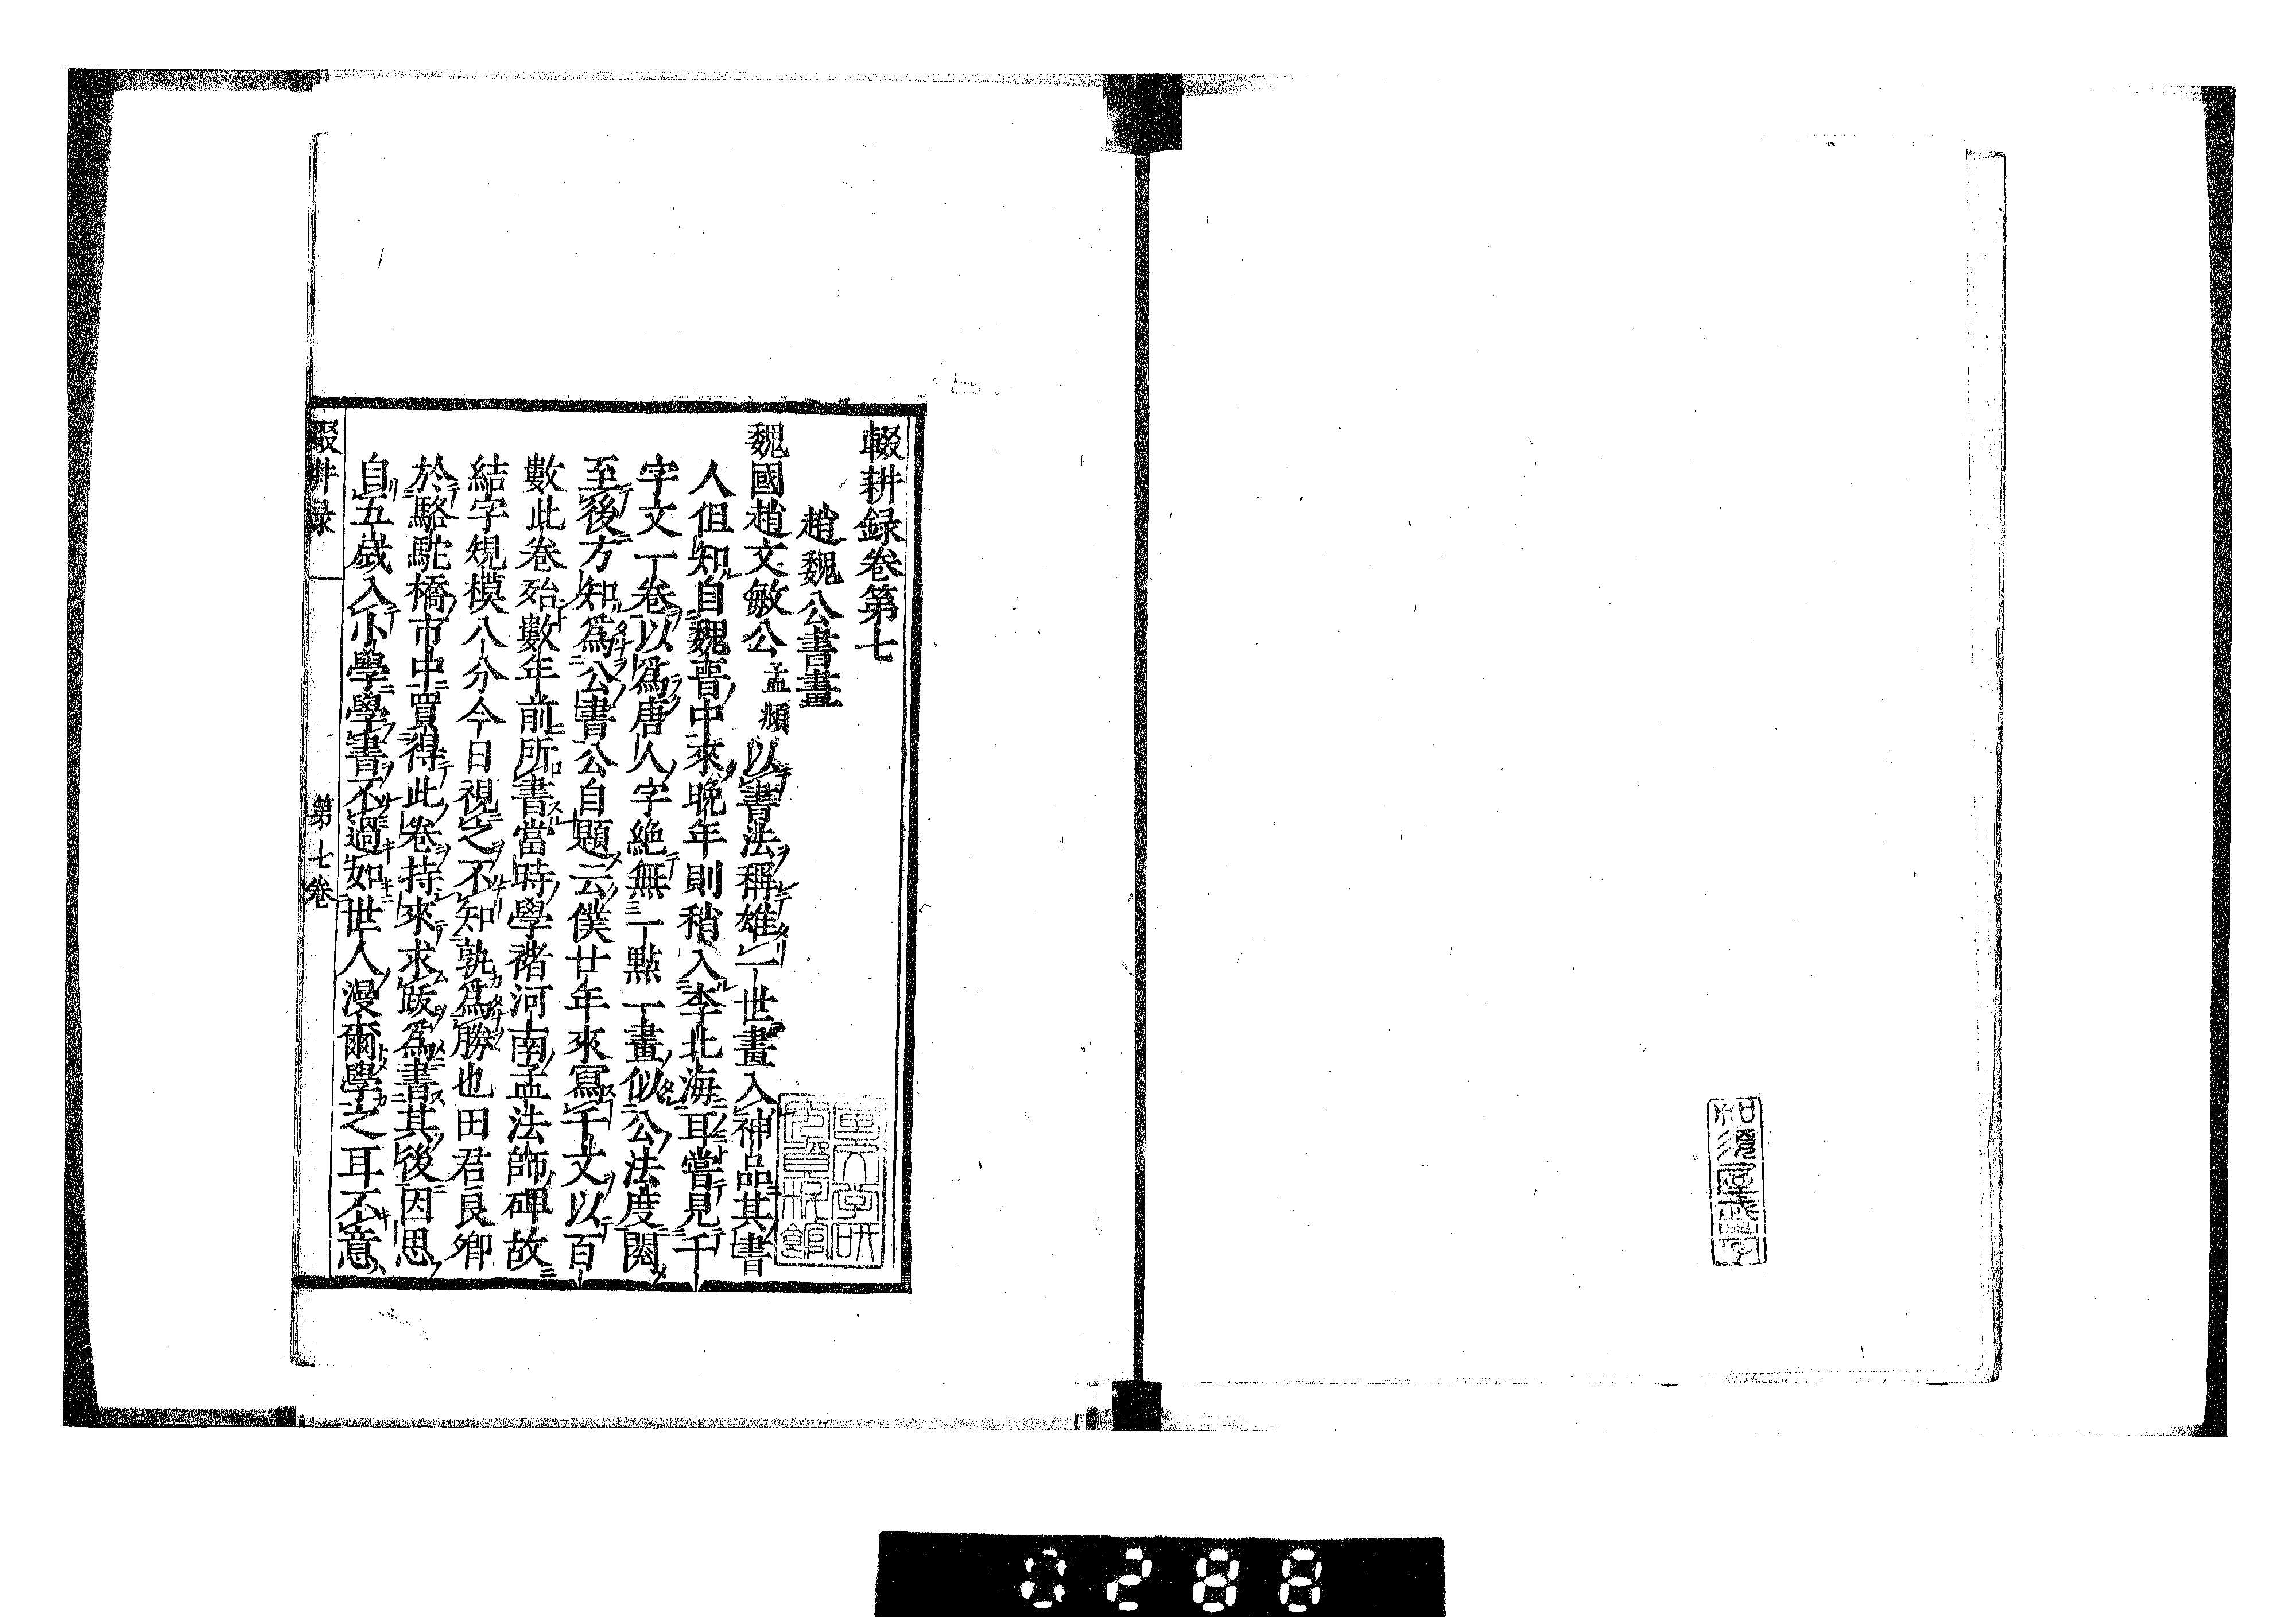 輟耕録卷第七
趙魏公書畫
魏國趙文敏公孟頫以書法稱雄一世畫入神品其書
人但知自魏晋中來晚年則稍入李北海耳嘗見千
字文一卷以為唐人字絶無一點一畫似公法度閱
至後方知為公書公自題云僕廿年來寫千文以百
數此卷殆數年前所書當時學褚河南孟法師碑故
結字規模八分今日視之不知孰為勝也田君良卿
於駱駝橋市中買得此卷持來求跋為書其後因思
自五歲入小學學書不過如世人漫爾學之耳不意
輟耕録 第七卷
0288